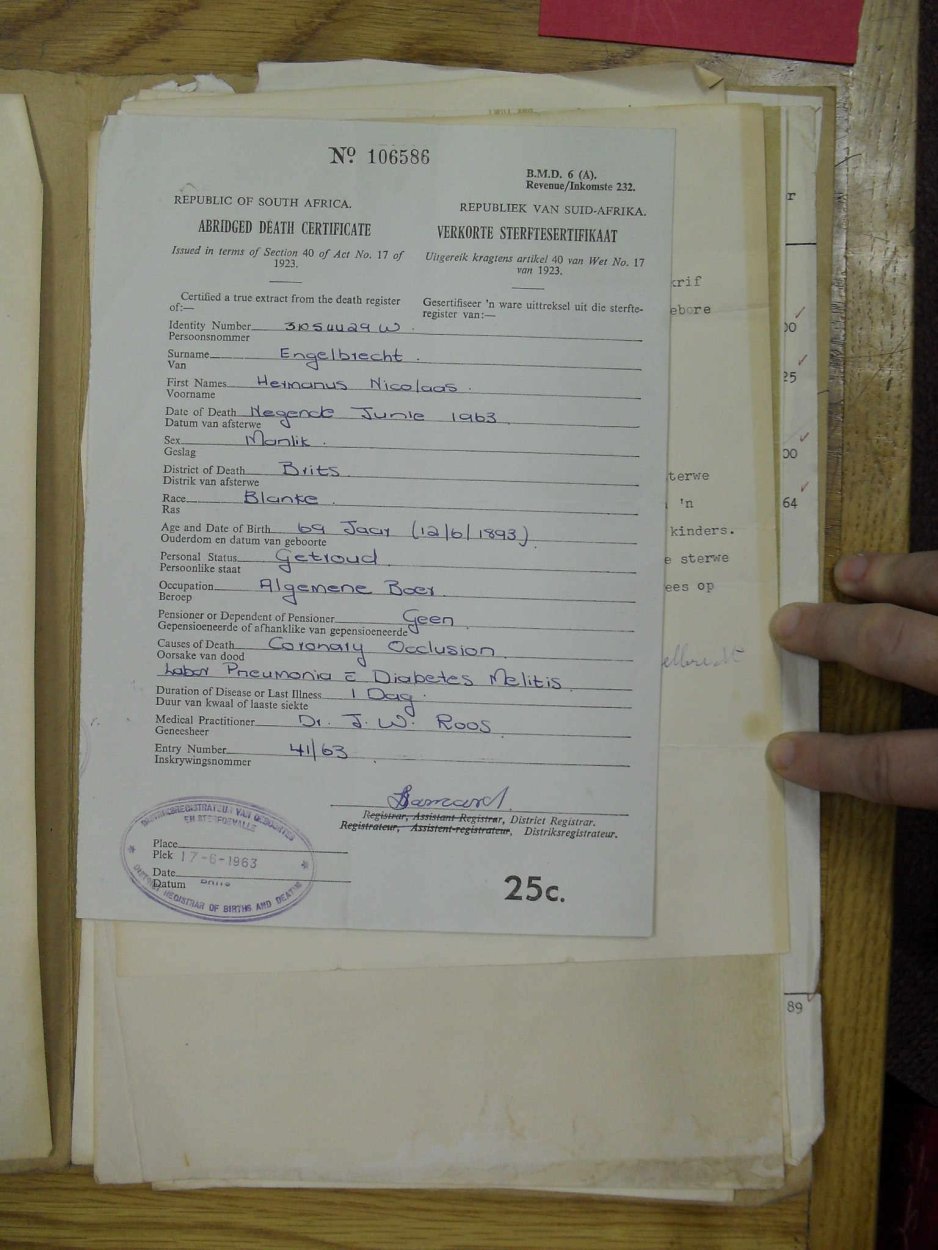 No 106586
B.M.D. 6 (A).
Revenue/Inkomste 232.
REPUBLIC OF SOUTH AFRICA.
ABRIDGED DEATH CERTIFICATE
Issued in terms of Section 40 of Act No. 17 of
1923.
REPUBLIEK VAN SUID-AFRIKA.
VERKORTE STERFTESERTIFIKAAT
Uitgereik kragtens artikel 40 van Wet No. 17
van 1923.
Certified a true extract from the death register
of:—
Gesertifiseer 'n ware uittreksel uit die sterfte-
register van:—
Identity Number 31054429 W
Persoonsnommer
Surname Engelbrecht.
Van
First Names Hermanus Nicolaas.
Voorname
Date of Death Negende Junie 1963
Datum van afsterwe
Sex Manlik.
Geslag
District of Death Brits
Distrik van afsterwe
Race Blanke.
Ras
Age and Date of Birth 69 Jaar (12/6/1893)
Ouderdom en datum van geboorte
Personal Status Getroud
Persoonlike staat
Occupation Algemene Boer.
Beroep
Pensioner or Dependent of Pensioner Geen
Gepensioeneerde of afhanklike van gepensioeneerde
Causes of Death Coronary Occlusion
Oorsake van dood
Lobar Pneumonia c̄ Diabetes Melitis
Duration of Disease or Last Illness 1 Dag.
Duur van kwaal of laaste siekte
Medical Practitioner Dr. J. W. Roos
Geneesheer
Entry Number 41/63
Inskrywingsnommer
Barnard.
Registrar, Assistant Registrar, District Registrar.
Registrateur, Assistent-registrateur, Distriksregistrateur.
DISTRIKSREGISTRATEUR VAN GEBOORTES
EN STERFGEVALLE
Place
Plek 17-6-1963
Date
Datum
DISTRICT REGISTRAR OF BIRTHS AND DEATHS
25c.
krif
ebore
terwe
'n
kinders.
e sterwe
ees op
elbrecht
r
00
25
00
64
89